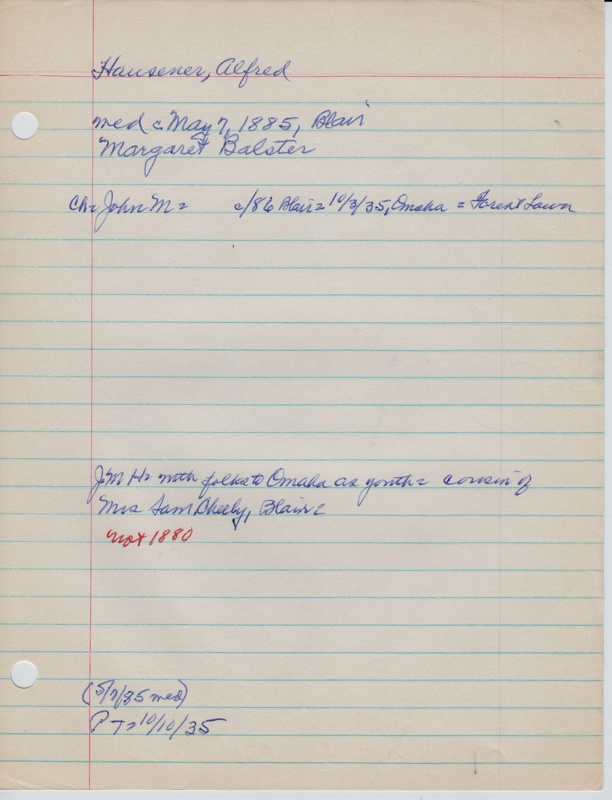 Hausener, Alfred
med c May 7, 1885, Blair
Margaret Balster
Ch = John M = c/86 Blair = 10/3/35, Omaha = Forest Lawn
J M H = with folks to Omaha as youth = cousin of
Mrs Sam Sheely, Blair =
not 1880
(5/7/85 med)
P T = 10/10/35